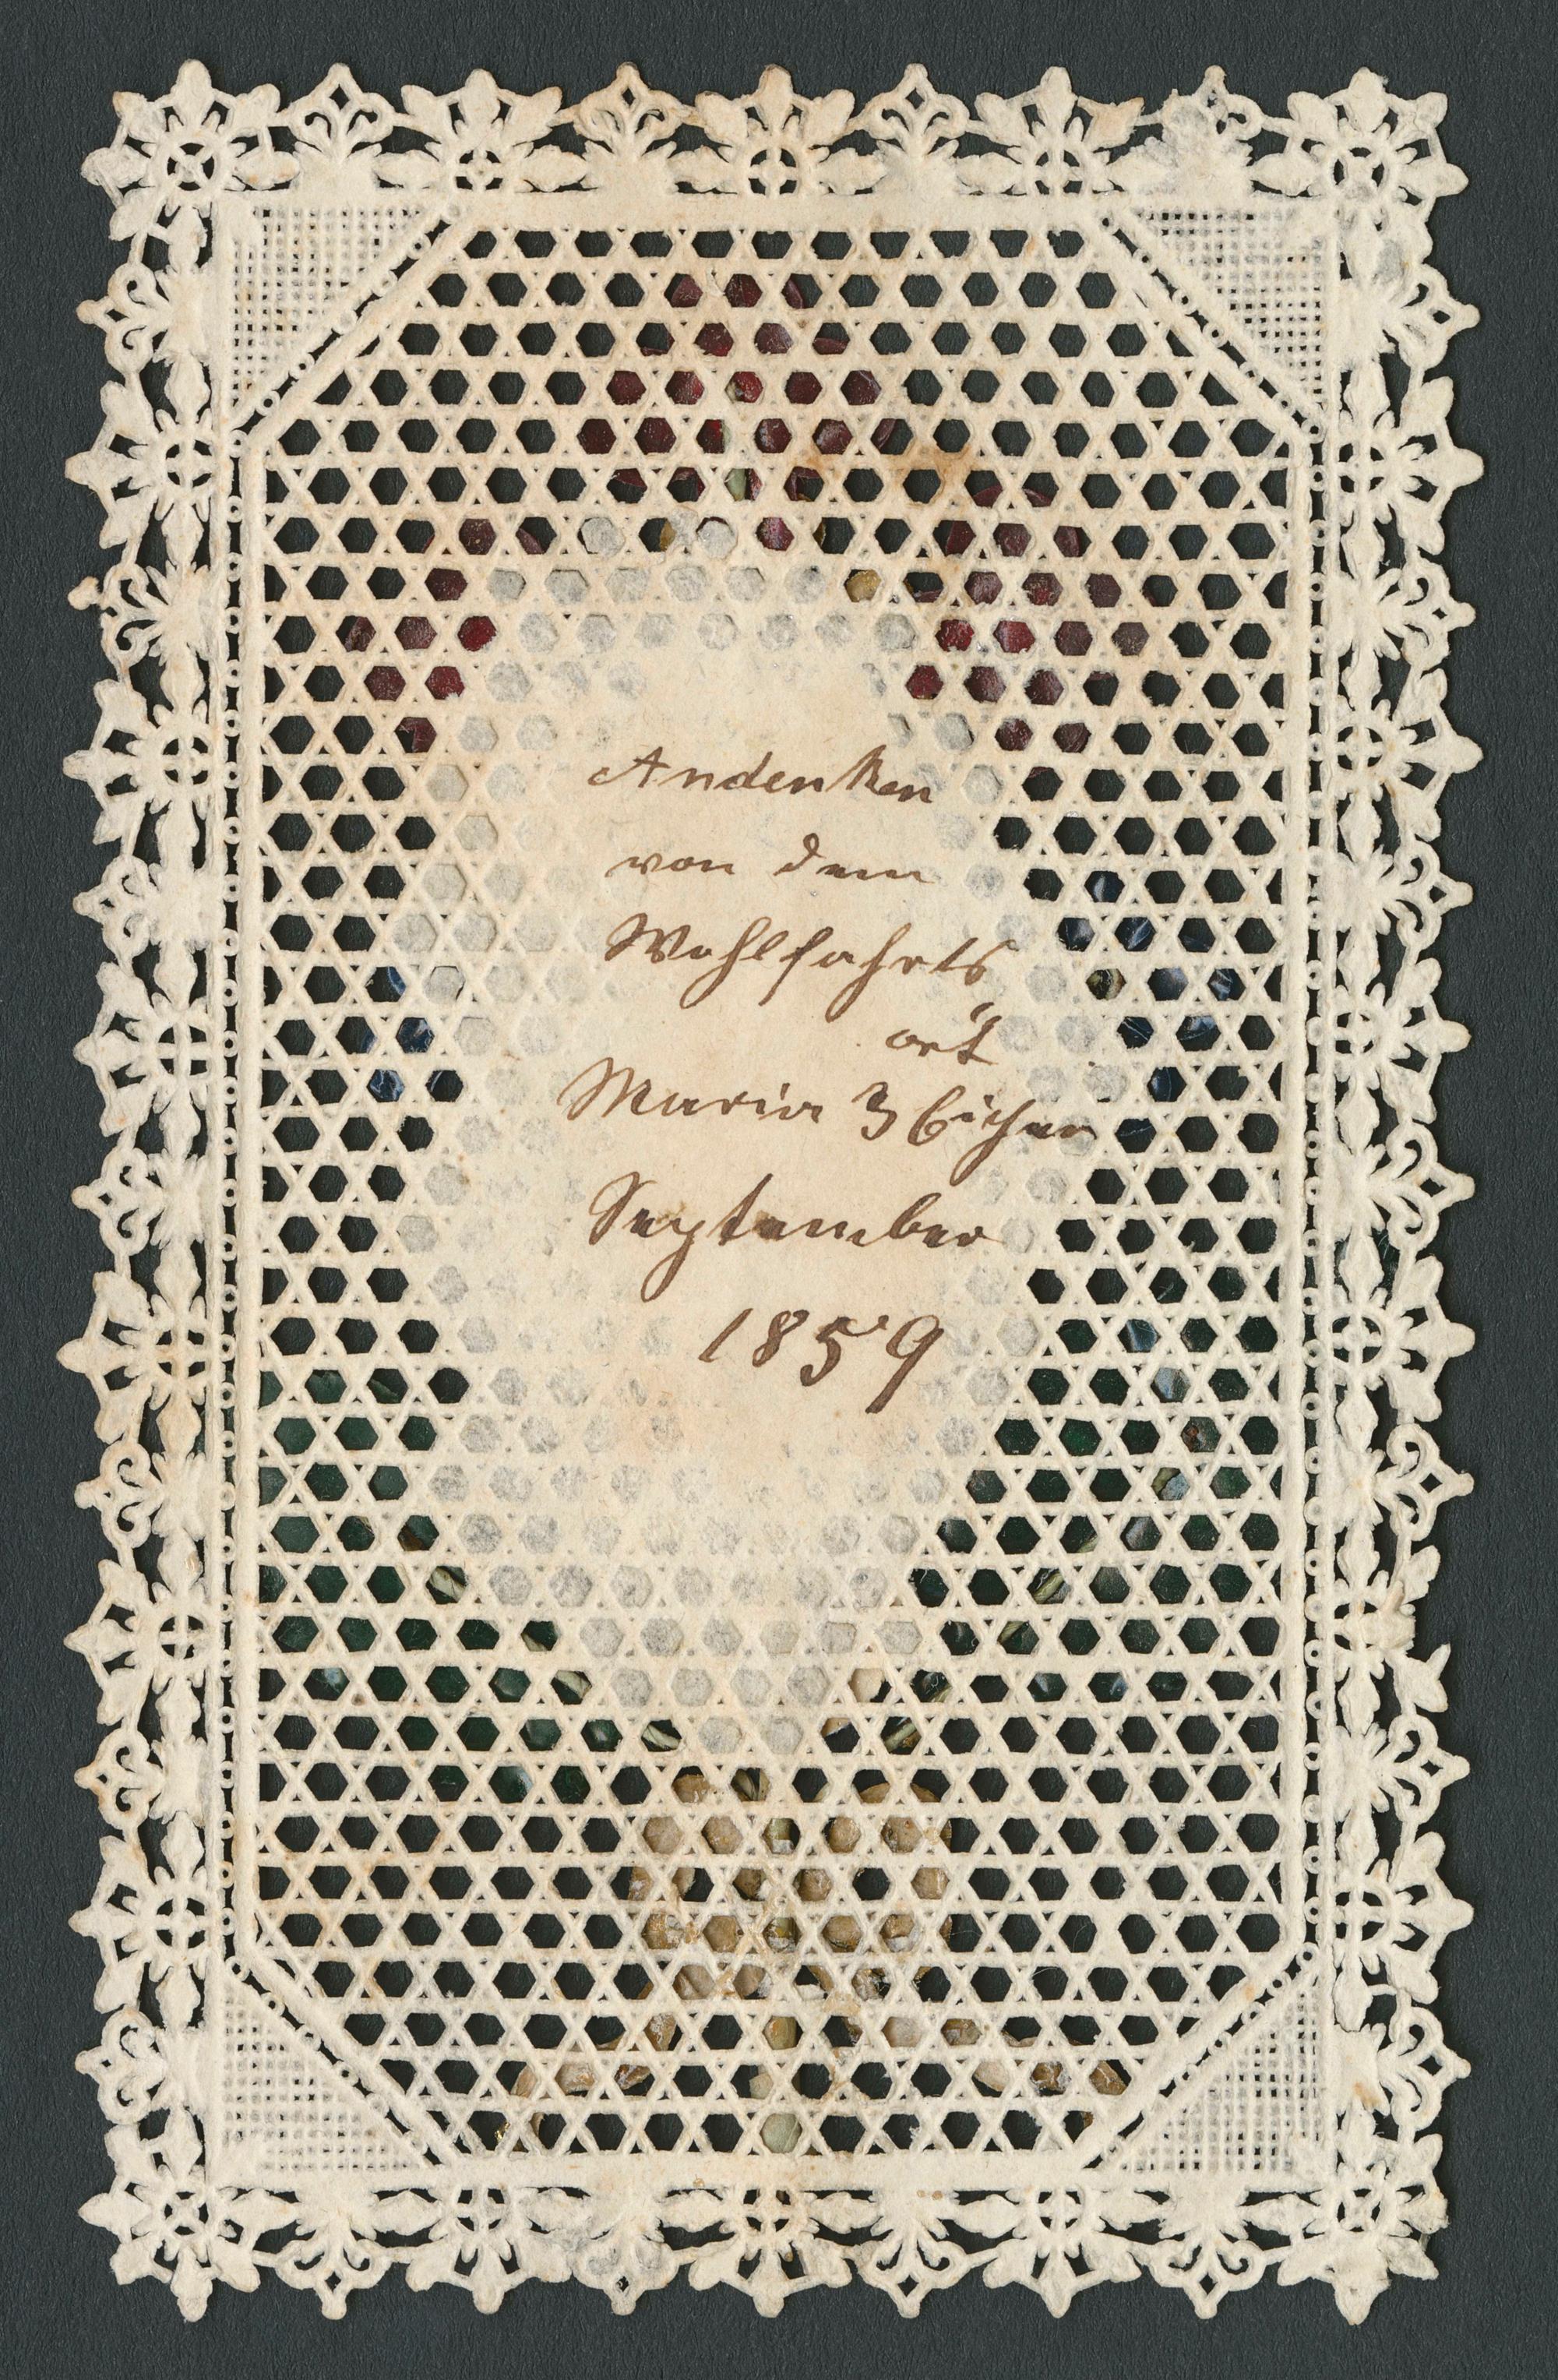 Andenken
von dem
Wohlfahrts
ort
Maria 3 Eichen
September
1859